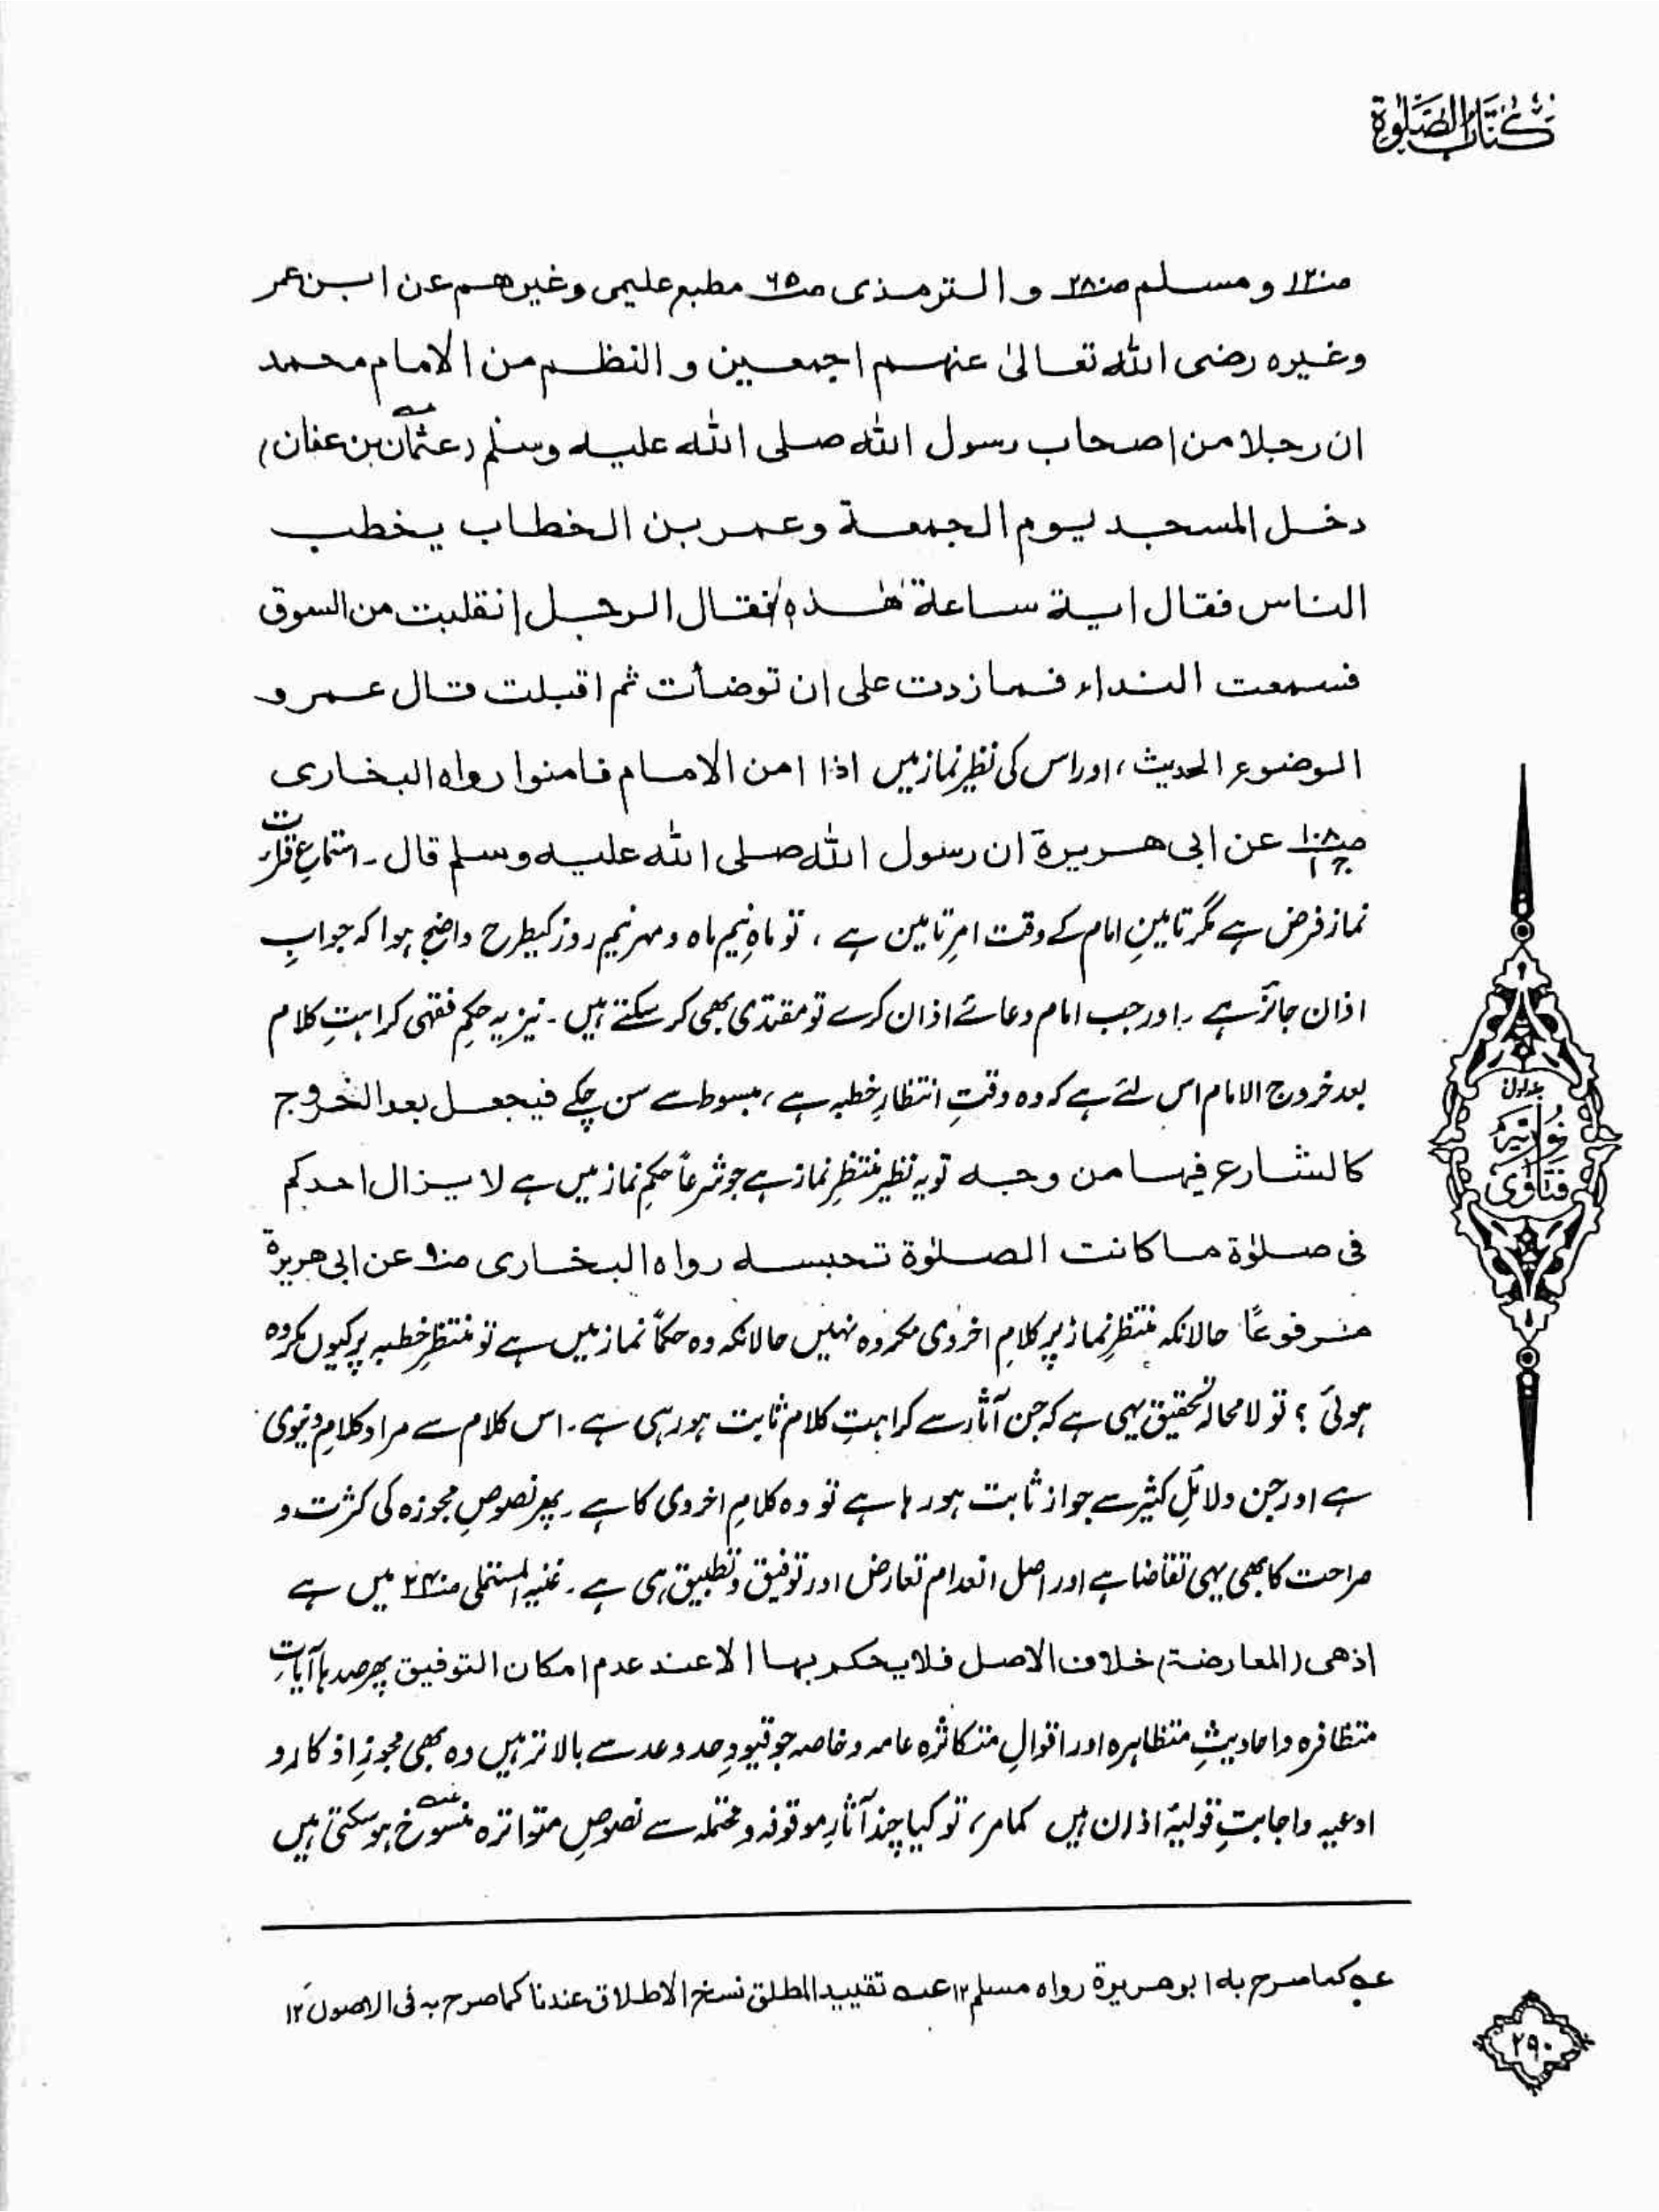 كتاب الصلوة
ص١٢٠ و مسلم ص٢٨٠ و الترمذی ص٦٥ مطبع علیمی وغیرهم عن ابن عمر
وغیره رضی الله تعالیٰ عنهم اجمعین و النظم من الامام محمد
ان رجلا من اصحاب رسول الله صلی الله علیه وسلم (عثمان بن عفان)عہ
دخل المسجد یوم الجمعة وعمر بن الخطاب یخطب
الناس فقال ایة ساعة هٰذه؟ فقال الرجل انقلبت من السوق
فسمعت النداء فما زدت علی ان توضأت ثم اقبلت قال عمر و
الوضوء الحدیث، اور اس کی نظیر نماز میں اذا امن الامام فامنوا رواه البخاری
ص١٠٨ ج١ عن ابی هریرة ان رسول الله صلی الله علیه وسلم قال۔ استماعِ قرارت
نماز فرض ہے مگر تامینِ امام کے وقت امرِ تامین ہے، تو ماہِ نیم ماہ و مہر نیم روز کیطرح واضح ہوا کہ جوابِ
اذان جائز ہے۔ اور جب امام دعائے اذان کرے تو مقتدی بھی کر سکتے ہیں۔ نیز یہ حکمِ فقہی کراہتِ کلام
بعد خروج الامام اس لئے ہے کہ وہ وقتِ انتظارِ خطبہ ہے، مبسوط سے سن چکے فیجعل بعد الخروج
کالشارع فیها من وجه تو یہ نظیر منتظرِ نماز ہے جو شرعاً حکمِ نماز میں ہے لا یزال احدکم
فی صلوٰة ما کانت الصلوٰة تحبسه رواه البخاری ص٩٠ عن ابی هریرة
مرفوعًا حالانکہ منتظرِ نماز پر کلامِ اخروی مکروہ نہیں حالانکہ وہ حکماً نماز میں ہے تو منتظرِ خطبہ پر کیوں مکروہ
ہوئی؟ تو لامحالہ تحقیق یہی ہے کہ جن آثار سے کراہتِ کلام ثابت ہو رہی ہے۔ اس کلام سے مراد کلامِ دنیوی
ہے اور جن دلائلِ کثیر سے جواز ثابت ہو رہا ہے تو وہ کلامِ اخروی کا ہے۔ پھر نصوصِ مجوزہ کی کثرت و
صراحت کا بھی یہی تقاضا ہے اور اصل انعدام تعارض اور توفیق و تطبیق ہی ہے۔ غنیہ المستملی ص٢٤٠ میں ہے
اذ هی (المعارضة) خلاف الاصل فلا یحکم بها الا عند عدم امکان التوفیق پھر صدہا آیاتِ
متظافرہ و احادیثِ متظاہرہ اور اقوالِ متکاثرہ عامہ و خاصہ جو قیودِ حد و عد سے بالا تر ہیں وہ بھی مجوزِ اذکار و
ادعیہ و اجابتِ قولیۂ اذان ہیں کما مر، تو کیا چند آثارِ موقوفہ و محتملہ سے نصوصِ متواترہ منسوخ عہ ہو سکتی ہیں
عہ کما صرح به ابو هریرة رواه مسلم ١٢ عہ تقیید المطلق نسخ الاطلاق عندنا کما صرح به فی الاصول ١٢
جلد اول
نوریہ
فتاوٰی
٢٩٠